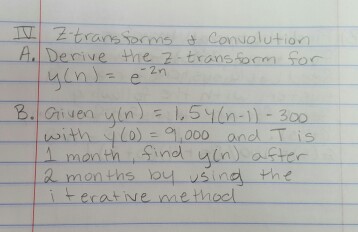 IV Z-transforms & Convolution
A. Derive the Z-transform for
y(n) = e^-2n
B. Given y(n) = 1.5y(n-1) - 300
with y(0) = 9,000 and T is
1 month, find y(n) after
2 months by using the
iterative method